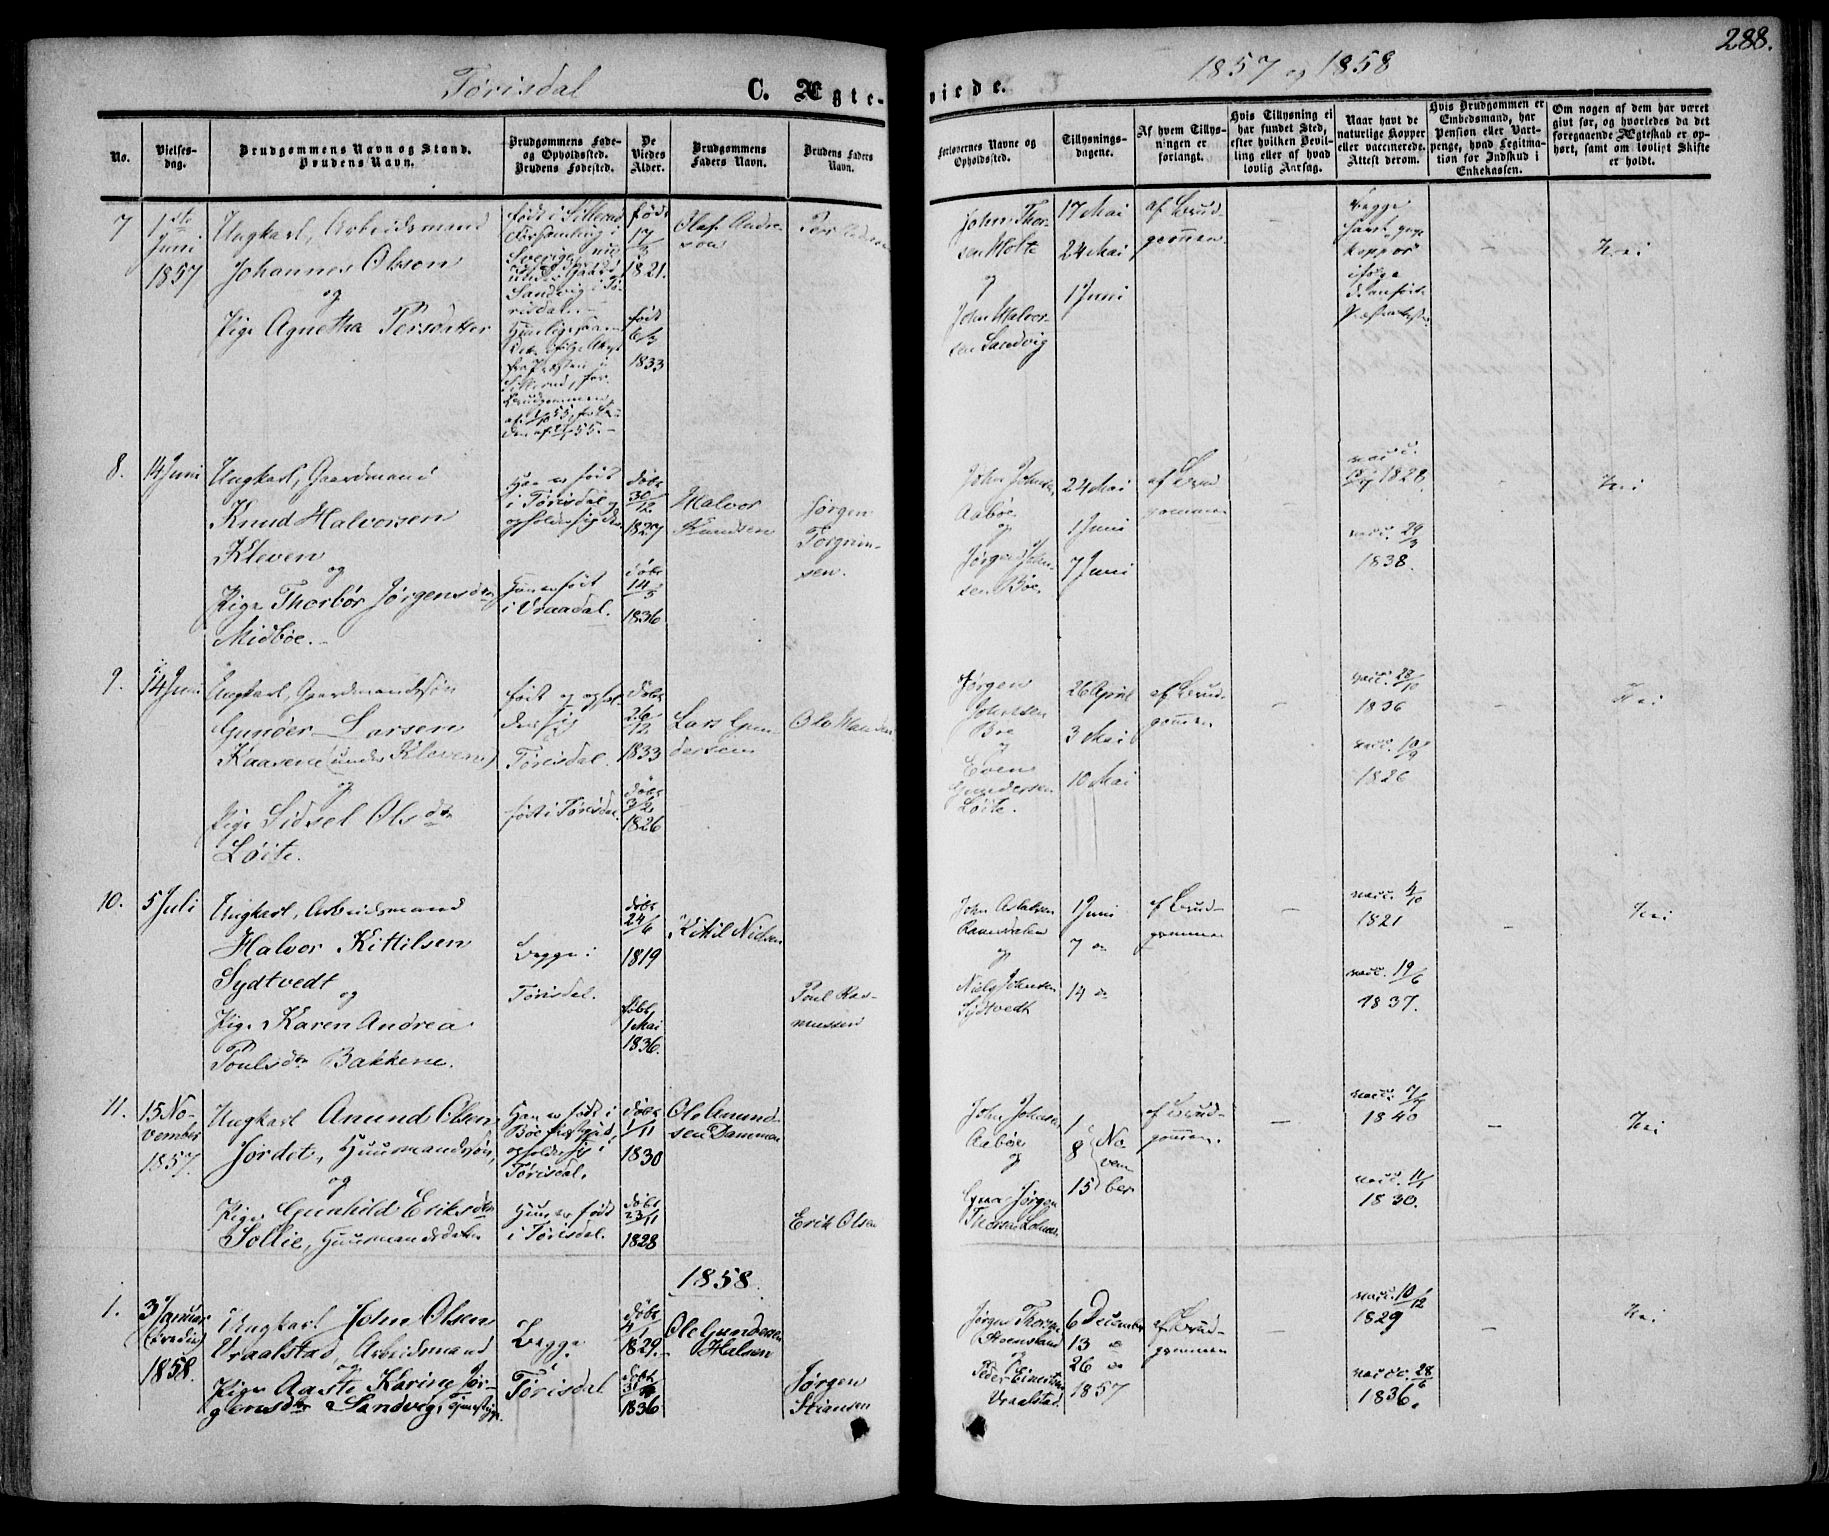 288.
Tørisdal
C. Ægte-
viede.
1857 og 1858
No.
Vielses-
dag.
Brudgommens Navn og Stand.
Brudens Navn.
Brudgommens Føde-
og Opholdssted.
Brudens Fødested.
De
Viedes
Alder.
Brudgommens
Faders Navn.
Brudens Faders
Navn.
Forlovernes Navne og
Opholdssted.
Tillysnings-
dagene.
Af hvem Tillys-
ningen er
forlangt.
Hvis Tillysning ei
har fundet Sted,
efter hvilken Bevil-
ling eller af hvad
lovlig Aarsag.
Naar havt de
naturlige Kopper
eller vaccinerede.
Attest derom.
Hvis Brudgommen er
Embedsmand, har
Pension eller Vart-
penge, hvad Legitima-
tion for Indskud i
Enkekassen.
Om nogen af dem har været
givt før, og hvorledes da det
foregaaende Ægteskab er op-
hørt, samt om lovligt Skifte
er holdt.
7
1ste
Juni
1857
Ungkarl, Arbeidsmand
Johannes Olson
og
Pige Agnetha Persdotter
født i Sillerud
Forsamling i
Sverige, nu
Sandvig i Tø-
risdal.
født
17/3
1821.
født
6/3
1833
Olaf Andre-
son
John Thor-
sen Holte
og
John Halvor-
sen Sandvig
17 Mai
24 Mai
1 Juni
af Brud-
gommen
Begge
havt
kopper
ifølge
Nei
8.
14 Juni
Ungkarl, Gaardmand
Knud Halvorsen
Kleven
og
Pige Thorbør Jørgensdtr
Midbøe.
Han er født
i Tørisdal og
opholder sig der
Hun er født
i Vraadal.
døbt
30/12
1827
døbt
14/5
1836
Halvor
Knudsen
Jørgen
Torgrim-
sen.
John Johnsen
Aabøe
og
Jørgen John-
sen Bøe
24 Mai
1 Juni
7 Juni
af Brud
gommen
1828.
vacc. 29/3
1838.
Nei
9.
14 Juni
Ungkarl, Gaardmandssøn
Gunder Larsen
Kaasene (under Kleven)
og
Pige Sidsel Olsdtr
Løite.
født og ophol-
der sig
i
Tørisdal.
født i Tørisdal.
døbt
26/12
1833
døbt
3/2
1826
Lars Gun
dersen
Jørgen
Johnsen
Bøe
og
Even
Gundersen
Løite.
26 April
3 Mai
10 Mai
af Brud-
gommen
vacc. 28/10
1836
vacc. 10/9
1826
Nei
10.
5 Juli
Ungkarl, Arbeidsmand
Halvor Kittilsen
Sydtvedt
og
Pige Karen Andrea
Poulsdtr Bakkene.
Begge i
Tørisdal.
døbt
24/6
1819
døbt
1 Mai
1836.
Kitil Nielsen
Poul Ras-
mussen
John Aslaksen
og
Niels Johnsen
Sydtvedt
1 Juni
7 do
14 do
af Brud-
gommen
vacc. 4/10
1821
vacc. 19/6
1837.
Nei
11.
15 No-
vember
1857.
Ungkarl Anund Olsen
Jordet, Huusmandssøn,
og
Pige Gunhild Eriksdtr
Sollie, Huusmandsdatter
Han er født i
Bøe Præstegjeld,
opholder sig i
Tørisdal.
Hun er født
i Tørisdal.
døbt
1/11
1830
døbt
23/11
1828
Ole Anund-
sen Dammen
Erik Olsen
John Johnsen
Aabøe
og
Jørgen
1
8 No-
vem
15 ber
af Brud-
gommen.
vacc. 7/7
1840
vacc. 11/1
1830.
Nei
1858.
1.
3 Januar
1858.
Ungkarl John Olsen
Vraalstad, Arbeidsmand
og
Pige Aaste Karine Jør-
gensdtr Sandvig,
Begge
i
Tørisdal
døbt
4/1
1829.
døbt
1836
Ole Gundersen
Halsen
Jørgen
Stiansen
Jørgen Thorsen
og
Peder Einertsen
Vraalstad.
6 December
13 do
26 do
1857
af Brud-
gommen
vacc. 10/12
1829
vacc. 28/6
1836.
Nei